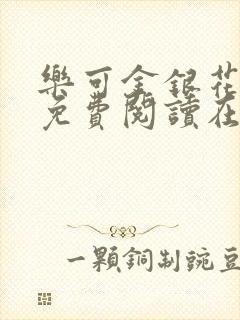 樂可金銀花
免費閱讀在
一顆銅制豌豆